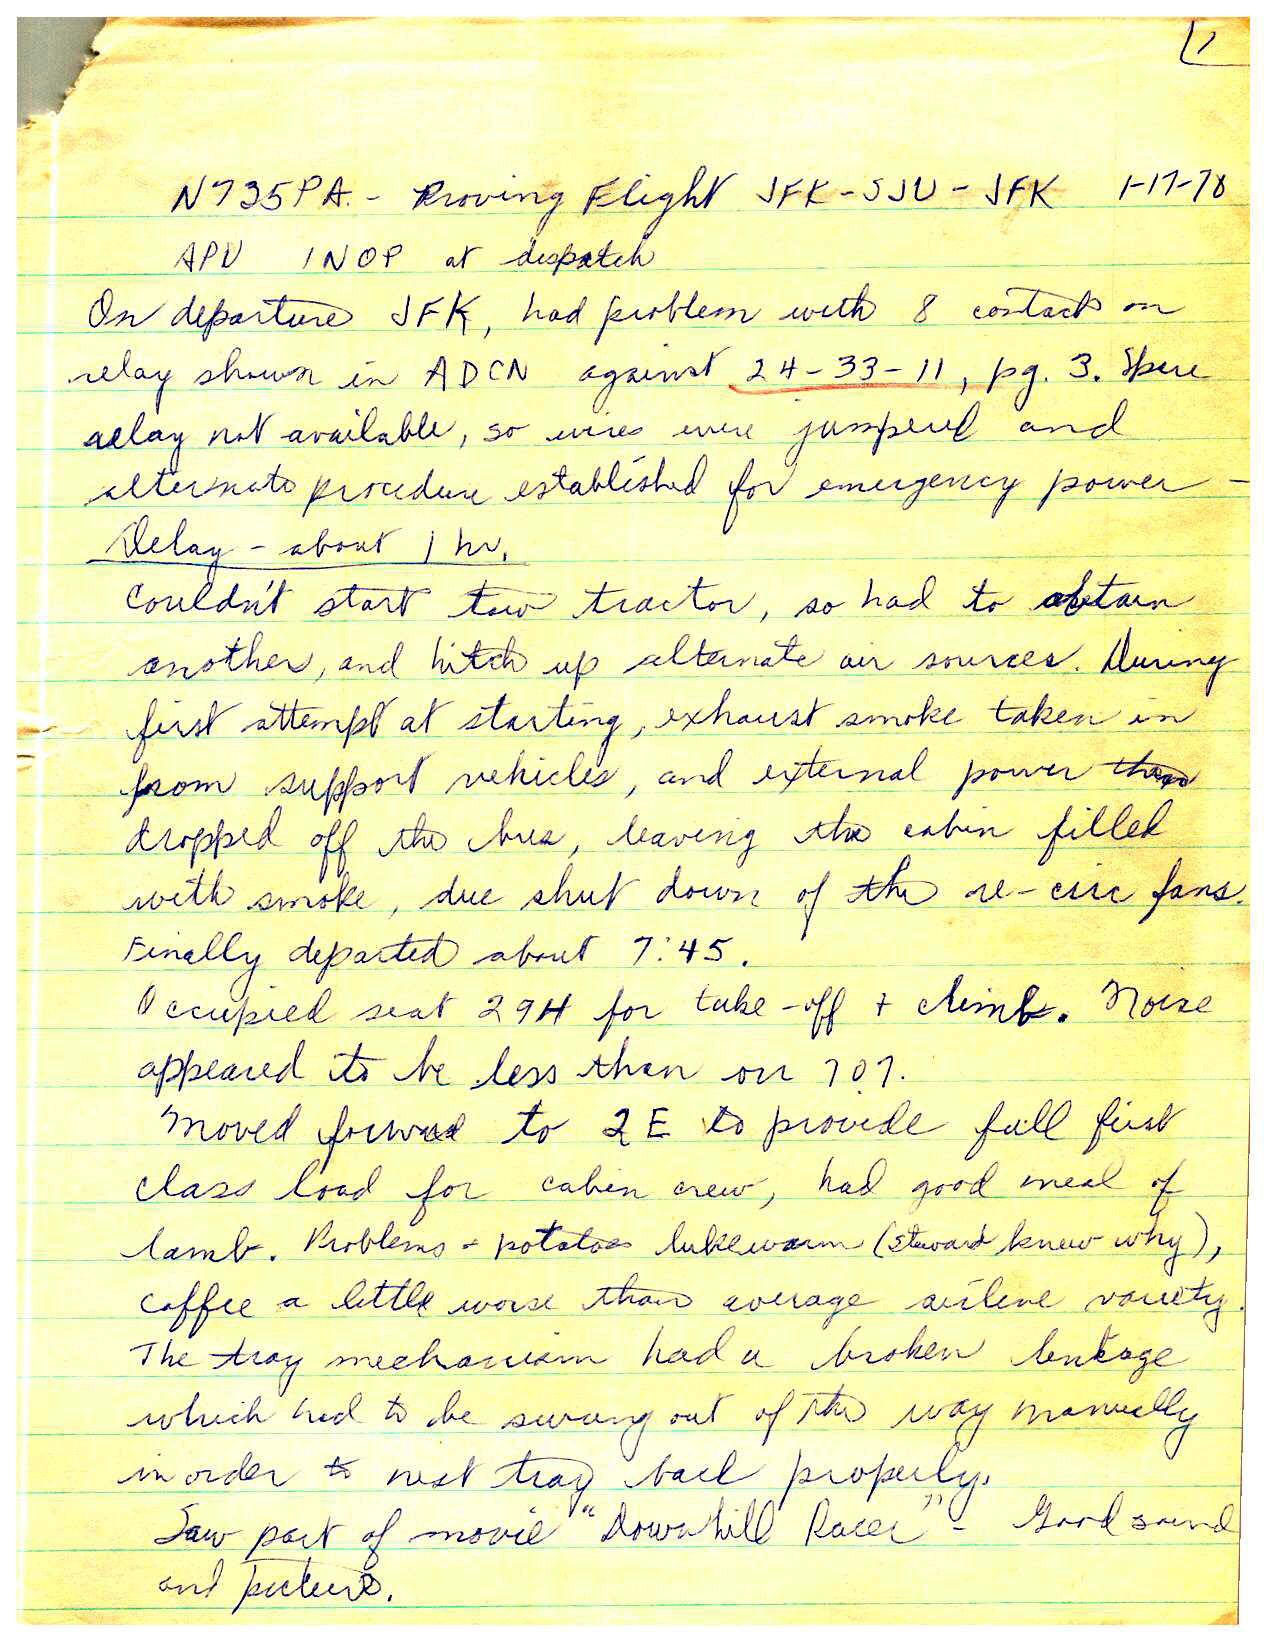 1
N735PA - Proving Flight JFK-SJU-JFK 1-17-70
APU INOP at dispatch
On departure JFK, had problem with 8 contact on
relay shown in ADCN against 24-33-11, pg. 3. Spare
relay not available, so wires were jumpered and
alternate procedure established for emergency power -
Delay - about 1 hr.
Couldn't start tow tractor, so had to obtain
another, and hitch up alternate air sources. During
first attempt at starting, exhaust smoke taken in
from support vehicles, and external power then
dropped off the bus, leaving the cabin filled
with smoke, due shut down of the re-circ fans.
Finally departed about 7:45.
Occupied seat 29H for take-off + climb. Noise
appeared to be less than on 707.
Moved forward to 2E to provide full first
class load for cabin crew, had good meal of
lamb. Problems - potatoes lukewarm (steward knew why),
coffee a little worse than average airline variety.
The tray mechanism had a broken linkage
which had to be swung out of the way manually
in order to nest tray back properly.
Saw part of movie "Downhill Racer" - Good sound
and picture.